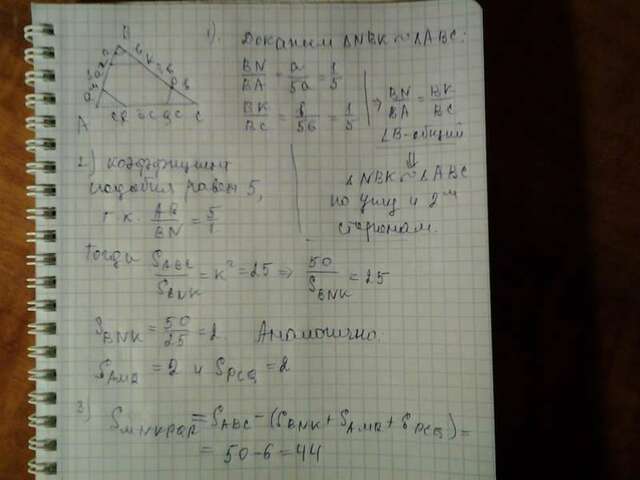 1). Докажем △NBK ∼ △ABC:
BN/BA = a/5a = 1/5
BK/BC = b/5b = 1/5
⇒ BN/BA = BK/BC
∠B-общий
⇓
△NBK ∼ △ABC
по углу и 2ᵐ
сторонам.
2) коэффициент
подобия равен 5,
т.к. AB/BN = 5/1
Тогда S_ABC/S_BNK = k² = 25 ⇒ 50/S_BNK = 25
S_BNK = 50/25 = 2. Аналогично.
S_AMQ = 2 и S_PCQ = 2
3) S_MNKPQP = S_ABC − (S_BNK + S_AMQ + S_PCQ) =
= 50 − 6 = 44